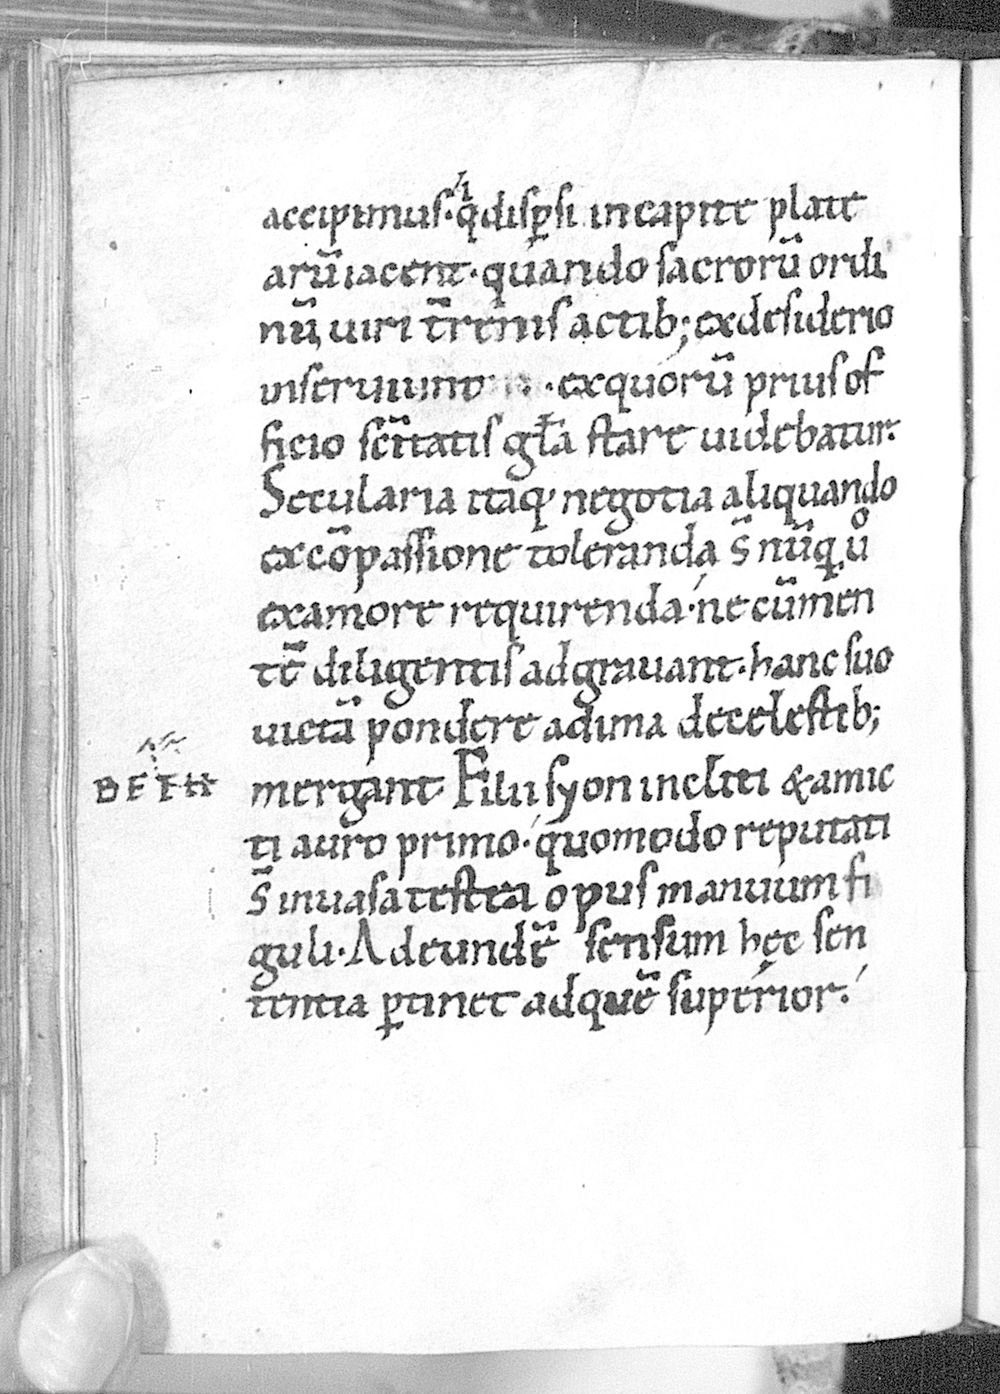 accipimus·q̄ı disp̱si in capite plate
arū iacent·quando sacrorū ordi
nū, uiri t̄renis actib; ex desiderio
inseruiunt ·ex quorū prius of
ficio sc̄itatis gl̄a stare uidebatur.
Secularia itaq; negotia aliquando
ex cōpassione toleranda s̄ nūq̄ uº
ex amore requirenda·ne cū men
tē diligentis adgrauant·hanc suo
uictā pondere ad ima de celestib;
BETH mergant Filii syon incliti & amic
ti auro primo·quomodo reputati
s̄ in uasa testea opus manuum fi
guli·Ad eundē sensum hęc sen
tentia p̱tinet ad quē superior.